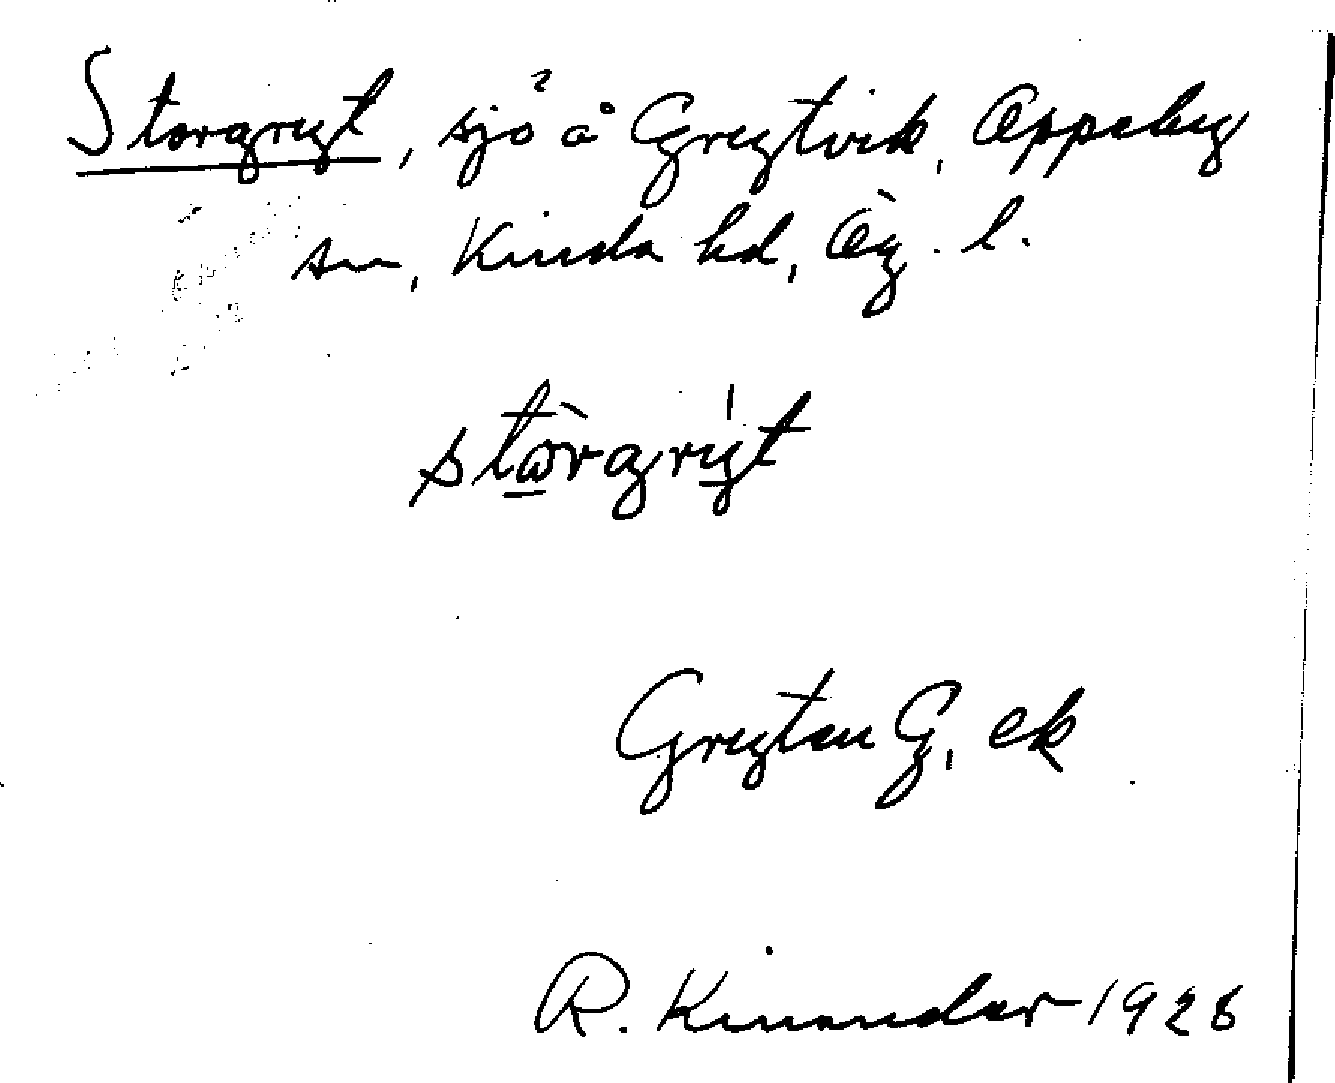 Storgryt, sjö å Grytvik, Oppeby
sn, Kinda hd, Ög. l.
stòrgrýt
Gryten G, ek
R. Kinander 1926